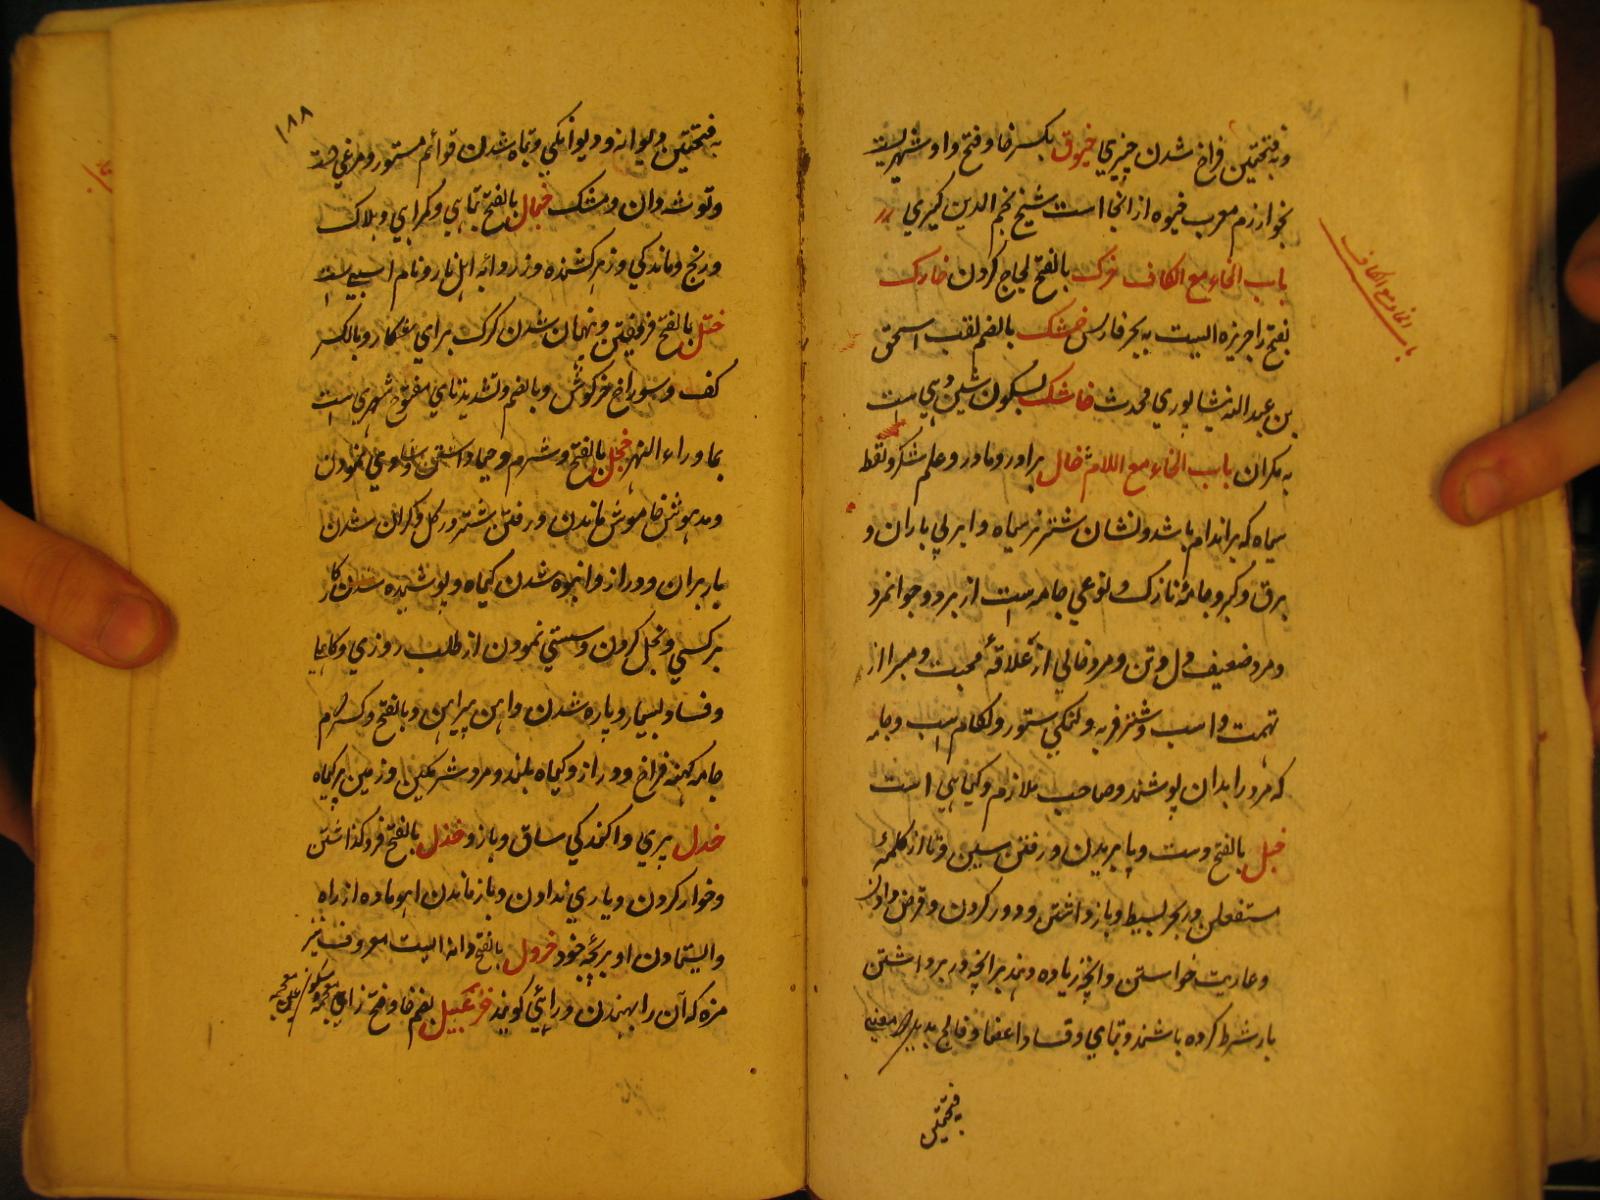 و بفتحتین فراخ شدن چیزی خیوق بکسر خا و فتح واو شهریست
بخوارزم معرب خیوه از انجا است شیخ نجم الدین کبری
باب الخاء مع الکاف خرک بالفتح لجاج کردن خارک
بفتح را جزیره ایست به بحر فارس خشک بالضم لقب اسحق
بن عبد الله نیشاپوری محدث خاشک بسکون شین دهی است
به مکران باب الخاء مع اللام خال برادر مادر و علم لشکر و نقطه
سیاه که بر اندام باشد و نشان شتر نر سیاه و ابر بی باران و
برق و کبر و جامه نازک و نوعی جامه ست از برد و جوانمرد
و مرد ضعیف دل و تن و مرد خالی از علاقه محبت و مبرا از
تهمت و اسب و شتر فربه و لنگی ستور و لکام اسب و جامه
که مرده را بدان پوشند و صاحب ملازم و گیاهی است
خبل بالفتح دست و پا بریدن و رفتن سین و تا از کلمه
مستفعلن در بحر بسیط و باز داشتن و دور کردن و قرض دادن
و عاریت خواستن و انچه زیاده دهند برانچه در بر داشتن
بار شرط کرده باشند و تباهی و فساد اعضا و فالج
بفتحتین
باب الخاء مع الکاف
۱۸۸
بفتحتین دیوانه و دیوانگی و تباه شدن قوائم ستور و مرغی ست
و توشه دان و مشک خبال بالفتح تباهی و گمراهی و هلاک
و رنج و ماندگی و زهر کشنده و زردآبه اهل نار و نام اسپی ست
ختل بالفتح فریفتن و نهان شدن گرگ برای شکار و بالکسر
کف و سوراخ خرگوش و بالضم و تشدید تای مفتوح شهری ست
بما وراء النهر خجل بالفتح و شرم و حیا داشتن و نمودن
و مدهوش خاموش ماندن و رفتن شتر در گل و گران شدن
بار بران و دراز و انبوه شدن گیاه و پوشیده شدن کار
بر کسی و بخل کردن و سستی نمودن از طلب روزی و
و فساد بسیار و پاره شدن دامن پیراهن و بالفتح و کسر جیم
جامه کهنه فراخ و دراز و گیاه بلند و مرد شرمگین و زمین پر گیاه
خدل پری و اکندگی ساق و بازو خذل بالفتح فرو گذاشتن
و خوار کردن و یاری ندادن و باز ماندن اهو ماده از راه
و ایستادن او بر بچه خود خردل بالفتح دانه ایست معروف تیز
مزه که آن را بهندی رائی گویند خزعبیل بضم خا و فتح زای معجمه